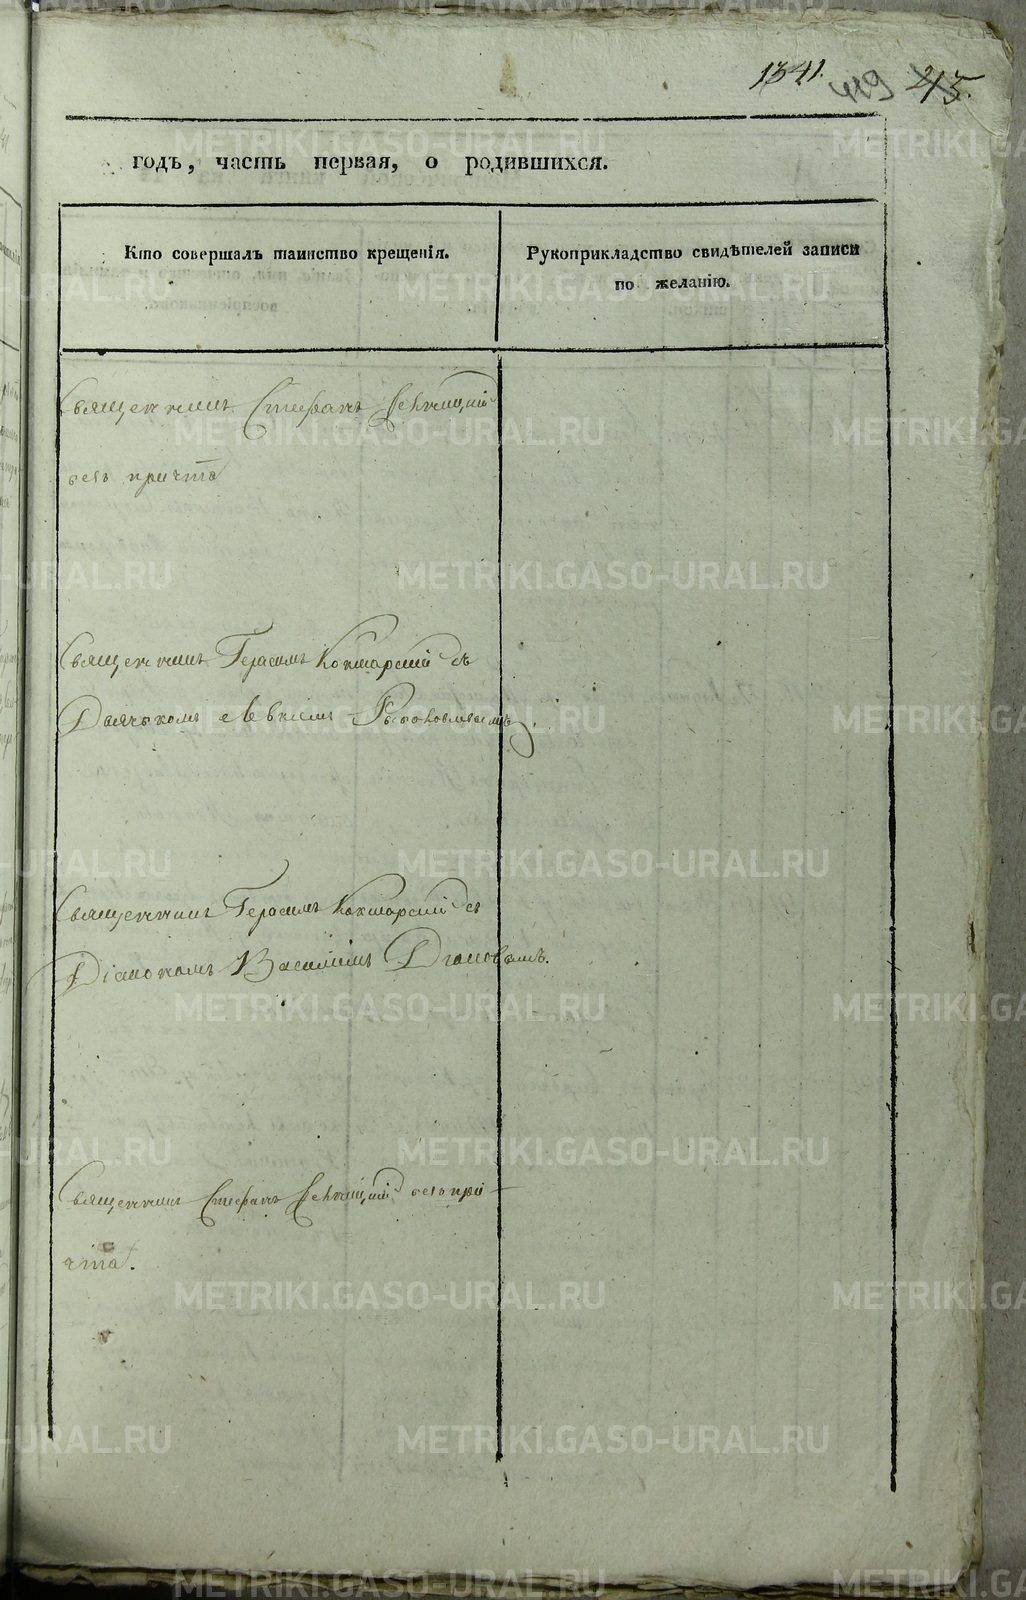 1341. 419 215.
годъ, часть первая, о родившихся.
Кто совершалъ таинство крещенія.
Рукоприкладство свидѣтелей записи
по желанію.
Священникъ Стефанъ
безъ причта
Священникъ Герасимъ Кокшарскій съ
Дьячкомъ
Священникъ Герасимъ Кокшарскій съ
Діакономъ Василіемъ
Священникъ Стефанъ безъ при-
чта.
METRIKI.GASO-URAL.RU